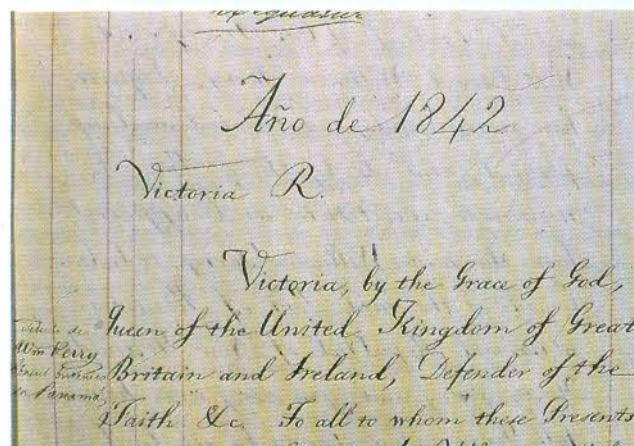 Exequatur
Año de 1842
Victoria R.
Victoria, by the Grace of God,
Queen of the United Kingdom of Great
Britain and Ireland, Defender of the
Faith &c. To all to whom these Presents
Wm Perry
en Panamá